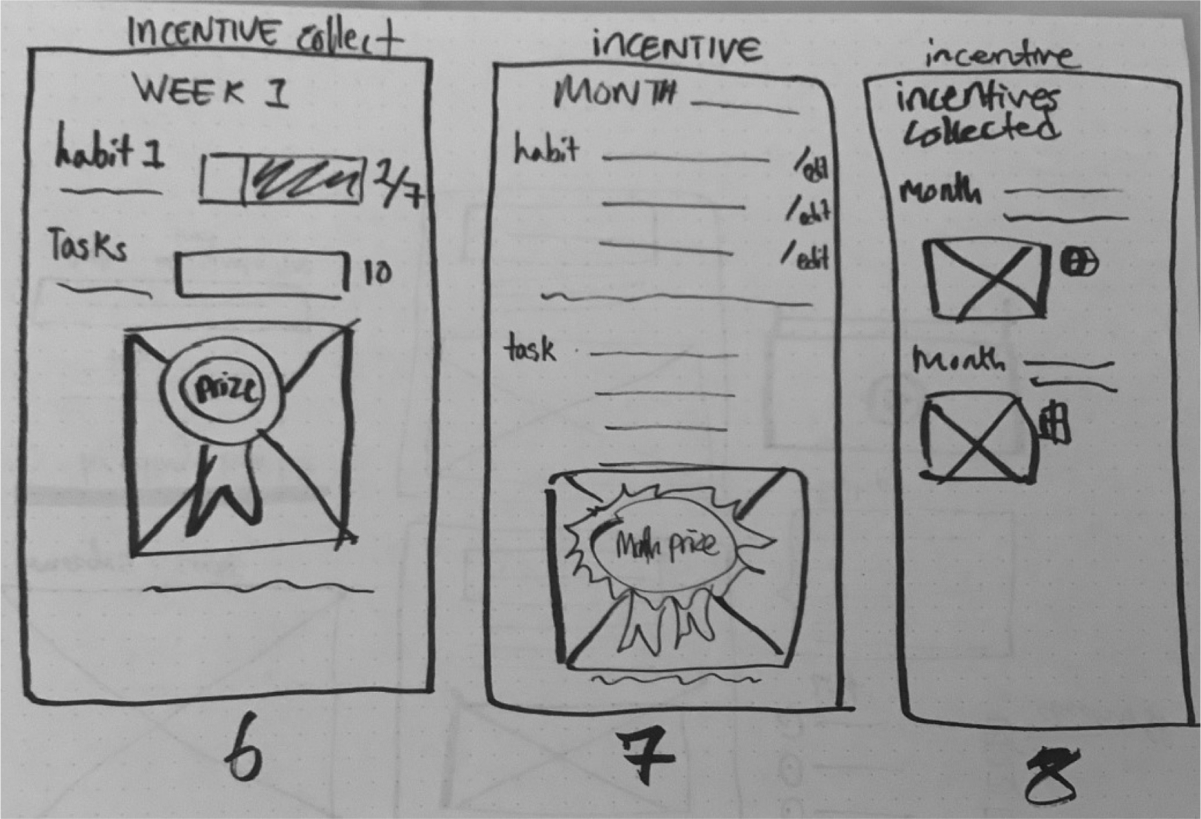 INCENTIVE collect
WEEK 1
habit 1
2/7
Tasks
10
Prize
6
INCENTIVE
MONTH
habit
/edit
/edit
/edit
task
prize
7
incentive
incentives
collected
Month
Month
8